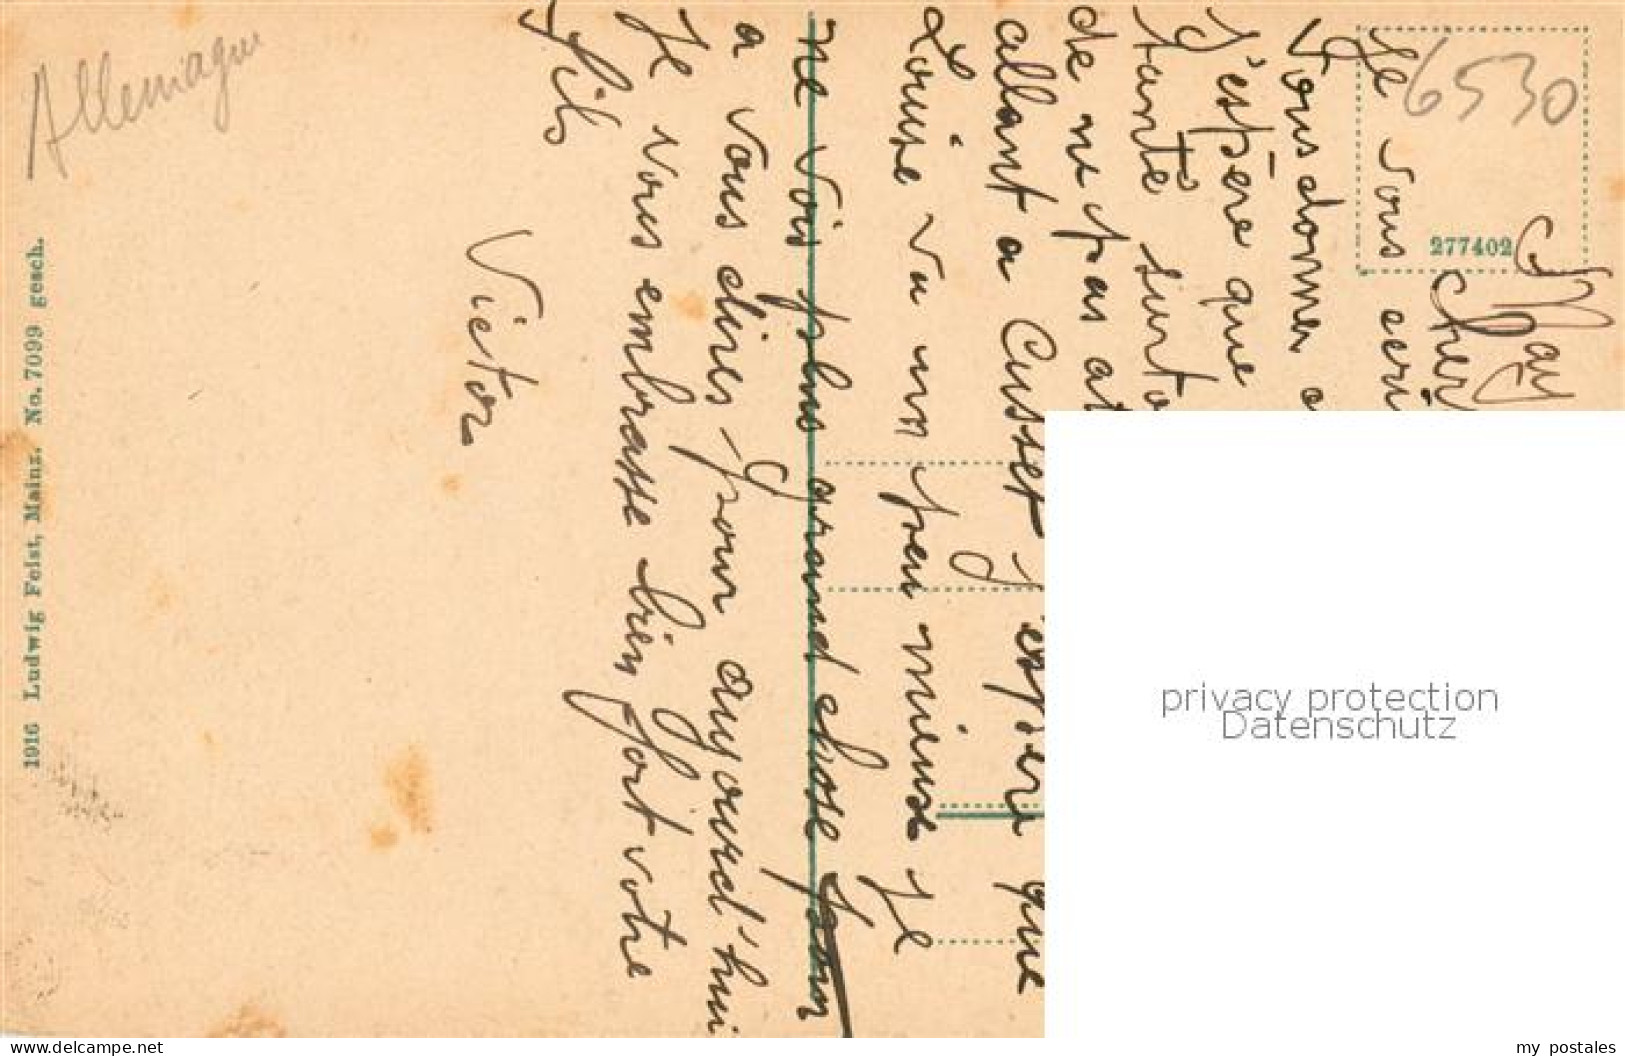 Allemagne
6530
277402
May
Cher
Je vous
Vous donner
J'espère que
Santé surto
de ne pas
allant a Cusset j'espere que
Louise va un peu mieuse je
ne vois plus grand chose pour
a vous dires pour aujourd'hui
Je vous embrasse bien fort votre
fils
Victor
1916 Ludwig Feist, Mainz. No. 7099 gesch.
privacy protection
Datenschutz
www.delcampe.net
my_postales